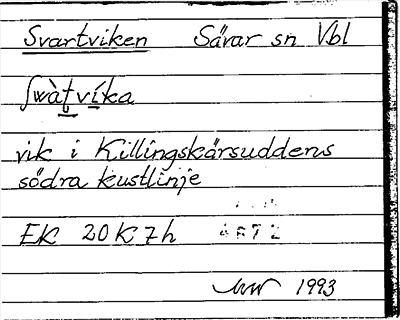 Svartviken Sävar sn Vbl
ʃwàṭvíka
vik i Killingskärsuddens
södra kustlinje
EK 20K7h
1993